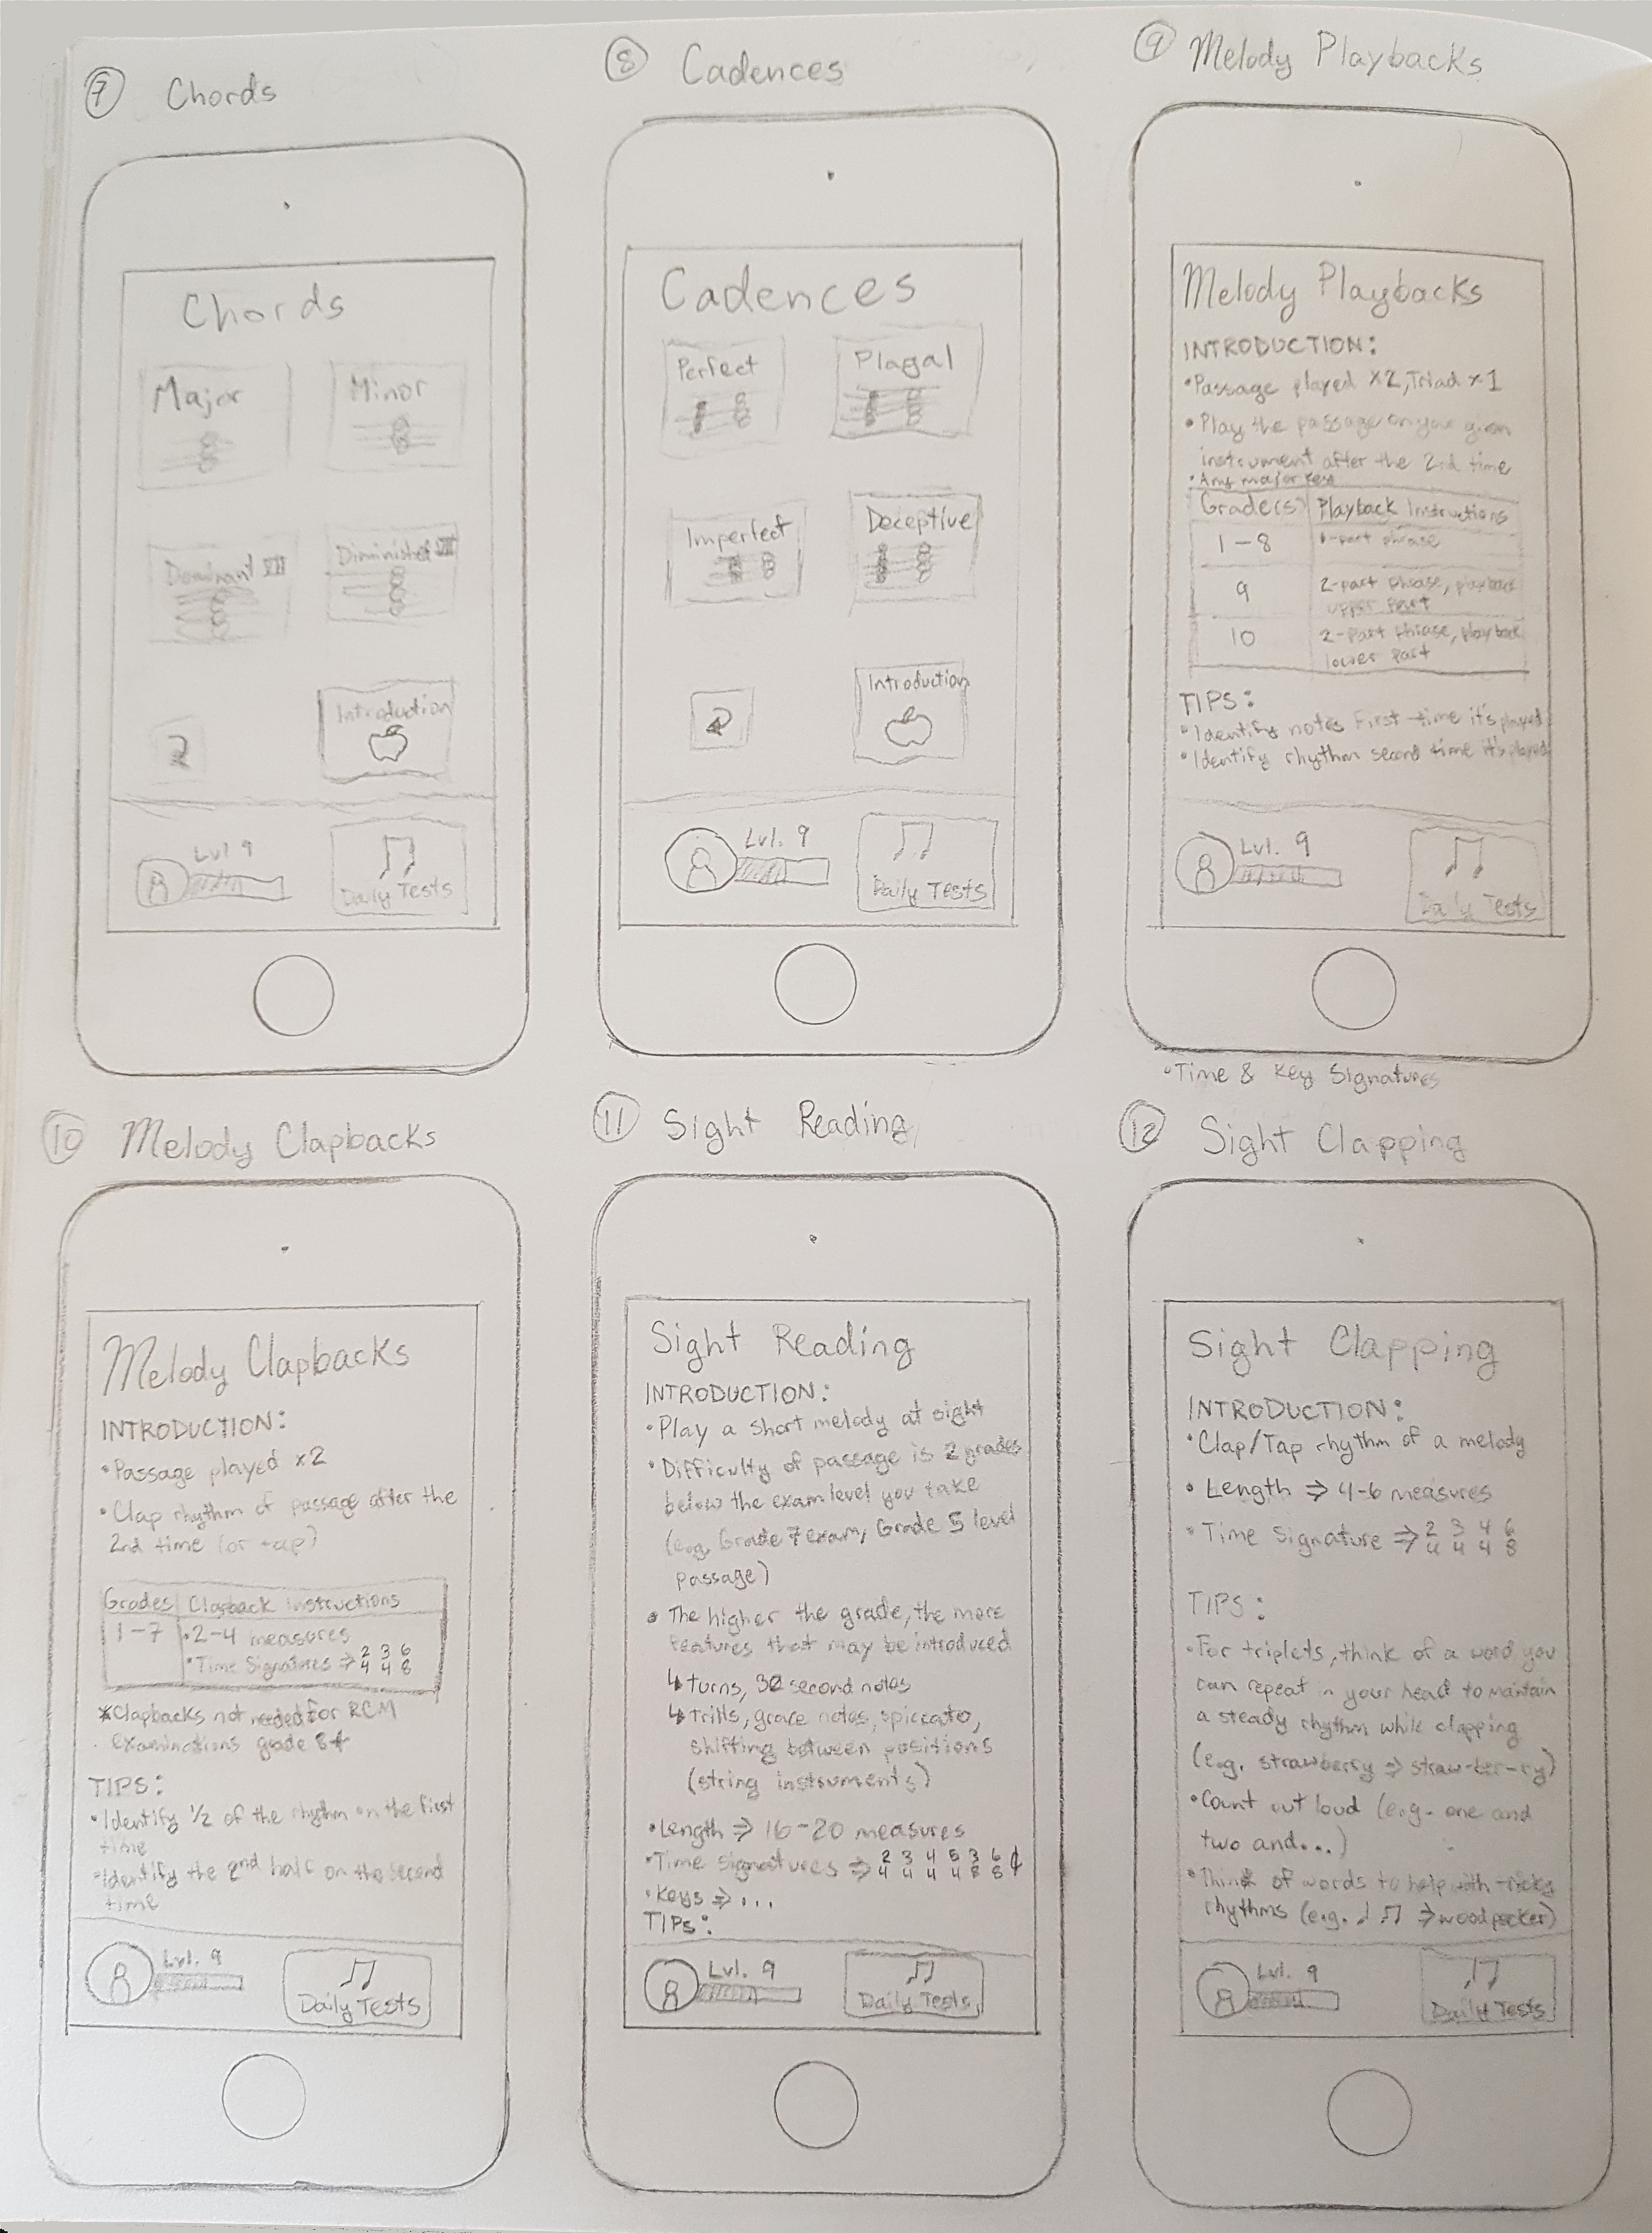 7 Chords
Chords
Major
Minor
Dominant VII
Diminished VII
Introduction
Lvl 9
Daily Tests
8 Cadences
Cadences
Perfect
Plagal
Imperfect
Deceptive
Introduction
Lvl. 9
Daily Tests
9 Melody Playbacks
Melody Playbacks
INTRODUCTION:
•Passage played x2, Triad x1
•Play the passage on your given
instrument after the 2nd time
•Any major key
Grade(s) Playback Instructions
1-8 1-part phrase
9 2-part phrase, playback
upper part
10 2-part phrase, playback
lower part
TIPS:
•Identify notes first time it's played
•Identify rhythm second time it's played
Lvl. 9
Daily Tests
•Time & Key Signatures
10 Melody Clapbacks
Melody Clapbacks
INTRODUCTION:
•Passage played x2
•Clap rhythm of passage after the
2nd time (or tap)
Grades Clapback Instructions
1-7 •2-4 measures
•Time Signatures ⇒ 2/4 3/4 6/8
*Clapbacks not needed for RCM
examinations grade 8+
TIPS:
•Identify 1/2 of the rhythm on the first
time
•Identify the 2nd half on the second
time
Lvl. 9
Daily Tests
11 Sight Reading
Sight Reading
INTRODUCTION:
•Play a short melody at sight
•Difficulty of passage is 2 grades
below the exam level you take
(e.g. Grade 7 exam, Grade 5 level
passage)
•The higher the grade, the more
features that may be introduced
↳ turns, 32 second notes
↳ Trills, grace notes, spiccato,
shifting between positions
(string instruments)
•Length ⇒ 16-20 measures
•Time Signatures ⇒ 2/4 3/4 4/4 5/4 3/8 6/8 ¢
•Keys ⇒ ...
TIPS:
Lvl. 9
Daily Tests
12 Sight Clapping
Sight Clapping
INTRODUCTION:
•Clap/Tap rhythm of a melody
•Length ⇒ 4-6 measures
•Time Signature ⇒ 2/4 3/4 4/4 6/8
TIPS:
•For triplets, think of a word you
can repeat in your head to maintain
a steady rhythm while clapping
(e.g. strawberry ⇒ straw-ber-ry)
•Count out loud (e.g. one and
two and...)
•Think of words to help with tricky
rhythms (e.g. ♩ ♫ ⇒ woodpecker)
Lvl. 9
Daily Tests